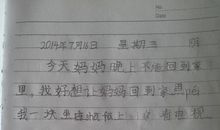 No.
Date
2014年7月16日 星期三 阴
今天妈妈晚上不能回到家
里,我好想让妈妈回到家里陪
我一块坐在沙发上 看电视